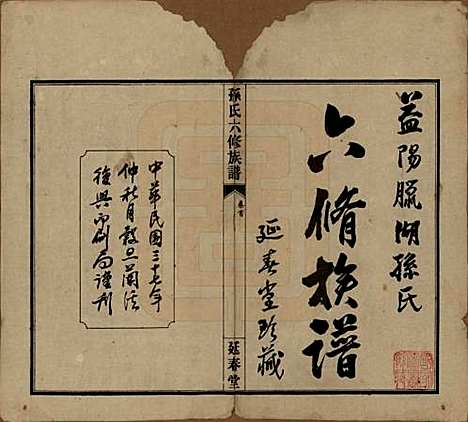 益陽臘湖孫氏
六脩族譜
延春堂珍藏
孫氏六修族譜
卷首
延春堂
中華民國三十七年
仲秋月穀旦蘭溪
復興印刷局謹刊